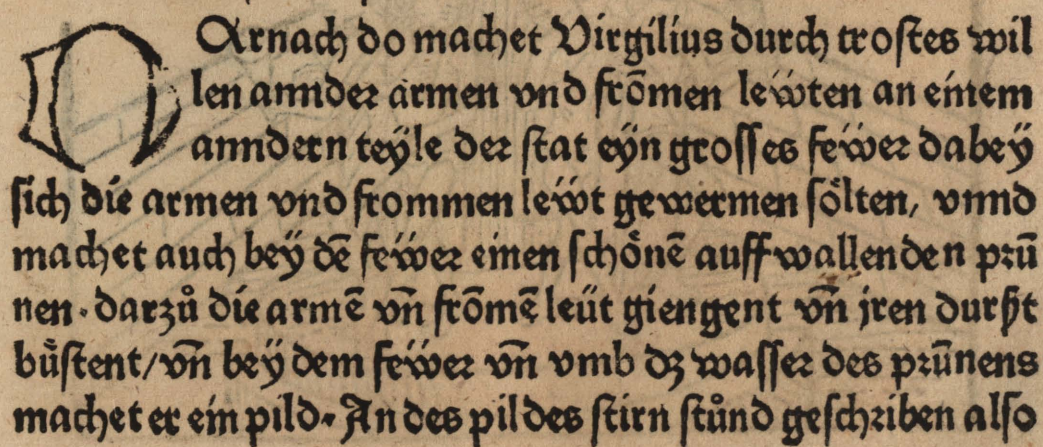 DArnach do machet Virgilius durch trostes wil
len annder armen vnd frōmen lewten an einem
anndern teÿle der stat eÿn grosses feẅer dabeÿ
sich die armen vnd frommen leẅt gewermen sölten, vnnd
machet auch beÿ dē feẅer einen schönē auffwallenden prū
nen · darzů die armē vn̄ frōmē leüt giengent vn̄ jren durst
bůstent/ vn̄ beÿ dem feẅer vn̄ vmb dz wasser des prūnens
machet er ein pild · An des pildes stirn stůnd geschriben also